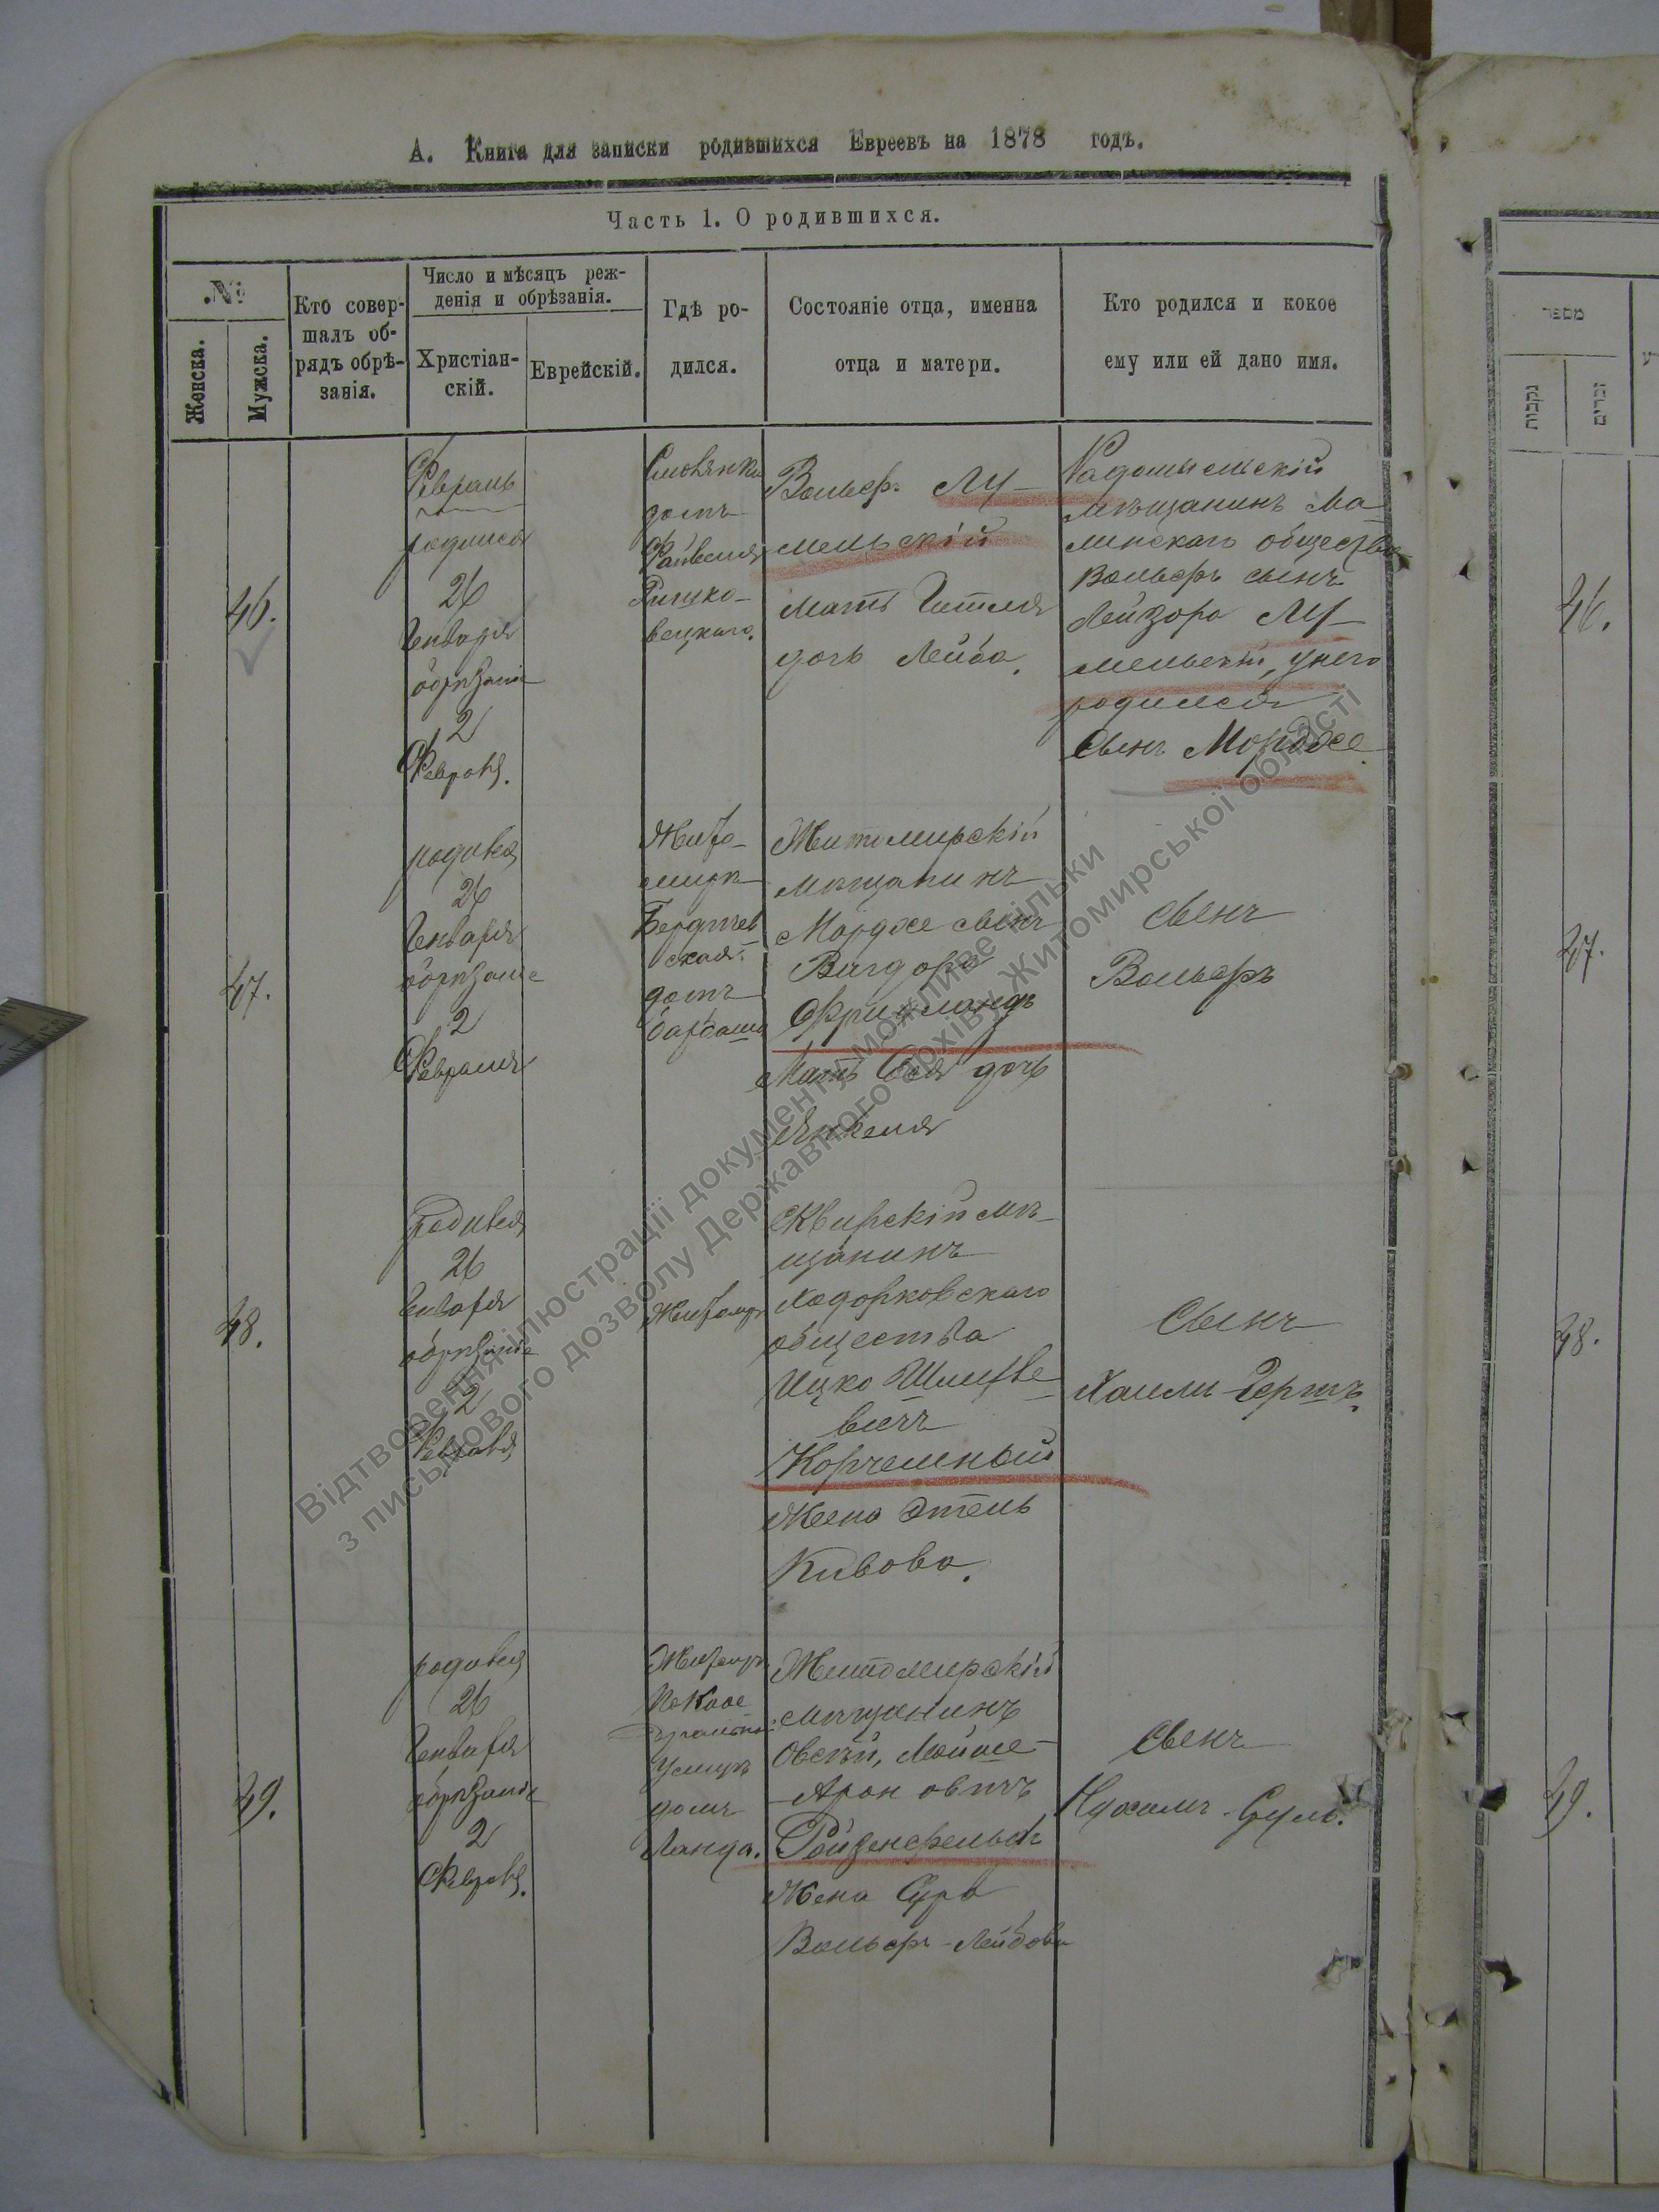 А. Книга для записки родившихся Евреевъ на 1878 годъ.
Часть 1. О родившихся.
№
Женска.
Мужска.
Кто совер-
шалъ об-
рядъ обрѣ-
занія.
Число и мѣсяцъ реж-
денія и обрѣзанія.
Христіан-
скій.
Еврейскій.
Гдѣ ро-
дился.
Состояніе отца, именна
отца и матери.
Кто родился и кокое
ему или ей дано имя.
46.
Февраль
родился
26
Генваря
обрѣзаніе
2
Февраля.
домъ
Файвеля
вецкаго.
Вольфъ Лу-
мельскій
Мать Гитля
дочь Лейба.
Радомысльскій
мѣщанинъ Ма-
линскаго общества
Вольфъ сынъ
Лейзора Лу-
мельскій, у него
родился
Сынъ Мордже.
47.
родився
26
Генваря
обрѣзаніе
2
Февраля
Жито-
миръ
Бердичев
ская
домъ
барбаша
Житомирскій
мѣщанинъ
Мордже сынъ
Вигдоръ
Фридландъ
Мать Бося дочь
Янкеля
Сынъ
Вольфъ
48.
родився
26
Генваря
обрѣзаніе
2
Февраля
Житомръ
Сквирскій мѣ-
щанинъ
Ходорковскаго
общества
Ицко Шлиове
вичъ
Корчемный
Жена Этель
Кивова.
Сынъ
Хаимъ-Гершъ.
49.
родився
26
Генваря
обрѣзаніе
2
Февраля.
Житомръ
улицъ
домъ
Ланда.
Житомирскій
мѣщанинъ
Овсѣй, Мойше-
Ароновичъ
Ройзенфельдъ
Жена Сура
Вольфъ-Лейбова
Сынъ
Нухимъ-Сруль.
Відтворення ілюстрації документу можливе тільки
з письмового дозволу Державного архіву Житомирської області
מספר
נקבות
זכרים
46.
47.
48.
49.